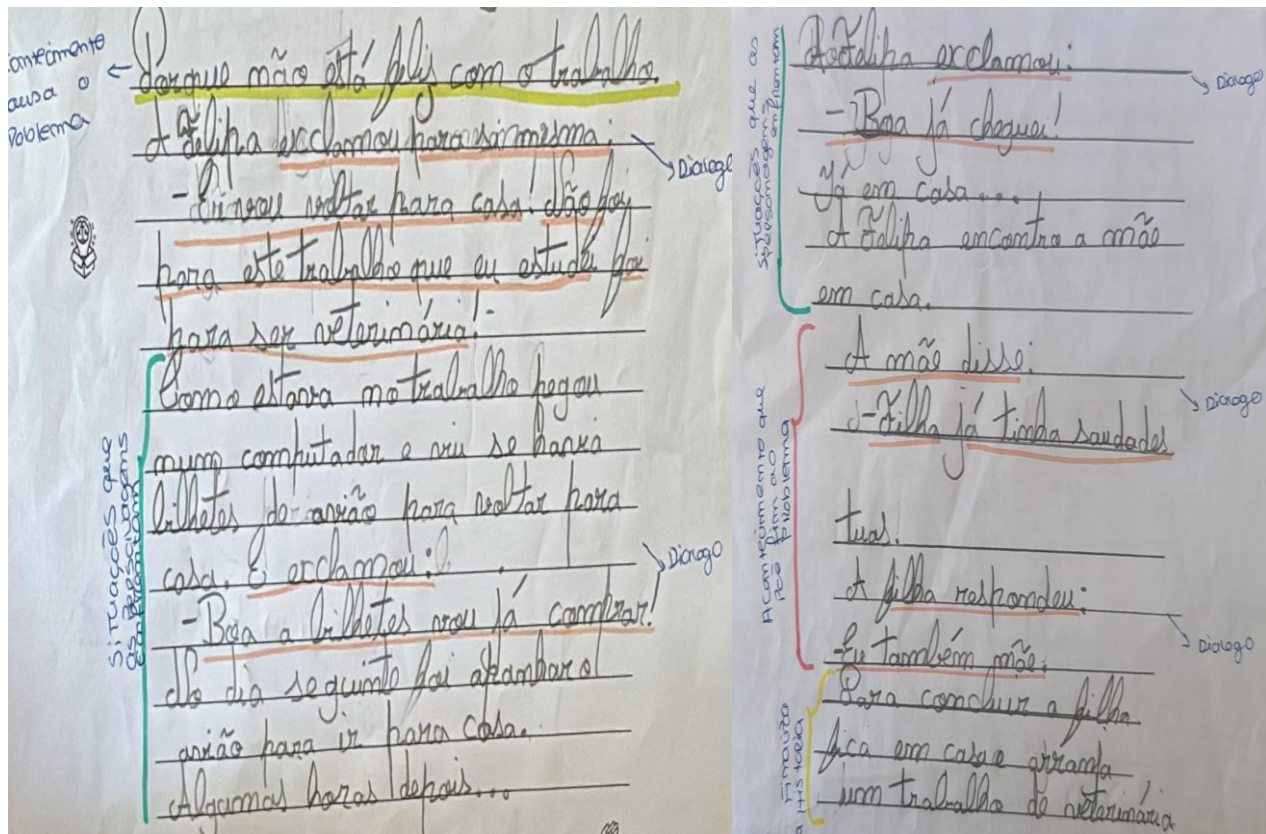 contecimento
ausa o
Poblema
porque não está feliz com o trabalho.
A Felipa exclamou para si mesma:
Dialogo
- Eu vou voltar para casa! Não foi
para este trabalho que eu estudei foi
para ser veterinária!
Como estava no trabalho pegou
num computador e viu se havia
bilhetes de avião para voltar para
casa. E exclamou:
Dialogo
- Boa a bilhetes vou já comprar!
No dia seguinte foi apanhar o
avião para ir para casa.
Algumas horas depois...
Situações que
as personagens
enfrontam
A Felipa exclamou:
Dialogo
- Boa já cheguei!
Já em casa....
A Felipa encontra a mãe
em casa.
Situações que as
personagens
enfrontam
A mãe disse:
Dialogo
- Filha já tinha saudades
tuas!
A filha respondeu:
Dialogo
- Eu também mãe.
Acontecimento que
pôs fim ao
problema
Para concluir a filha
fica em casa e arranja
um trabalho de veterinária
Finaliza
a história